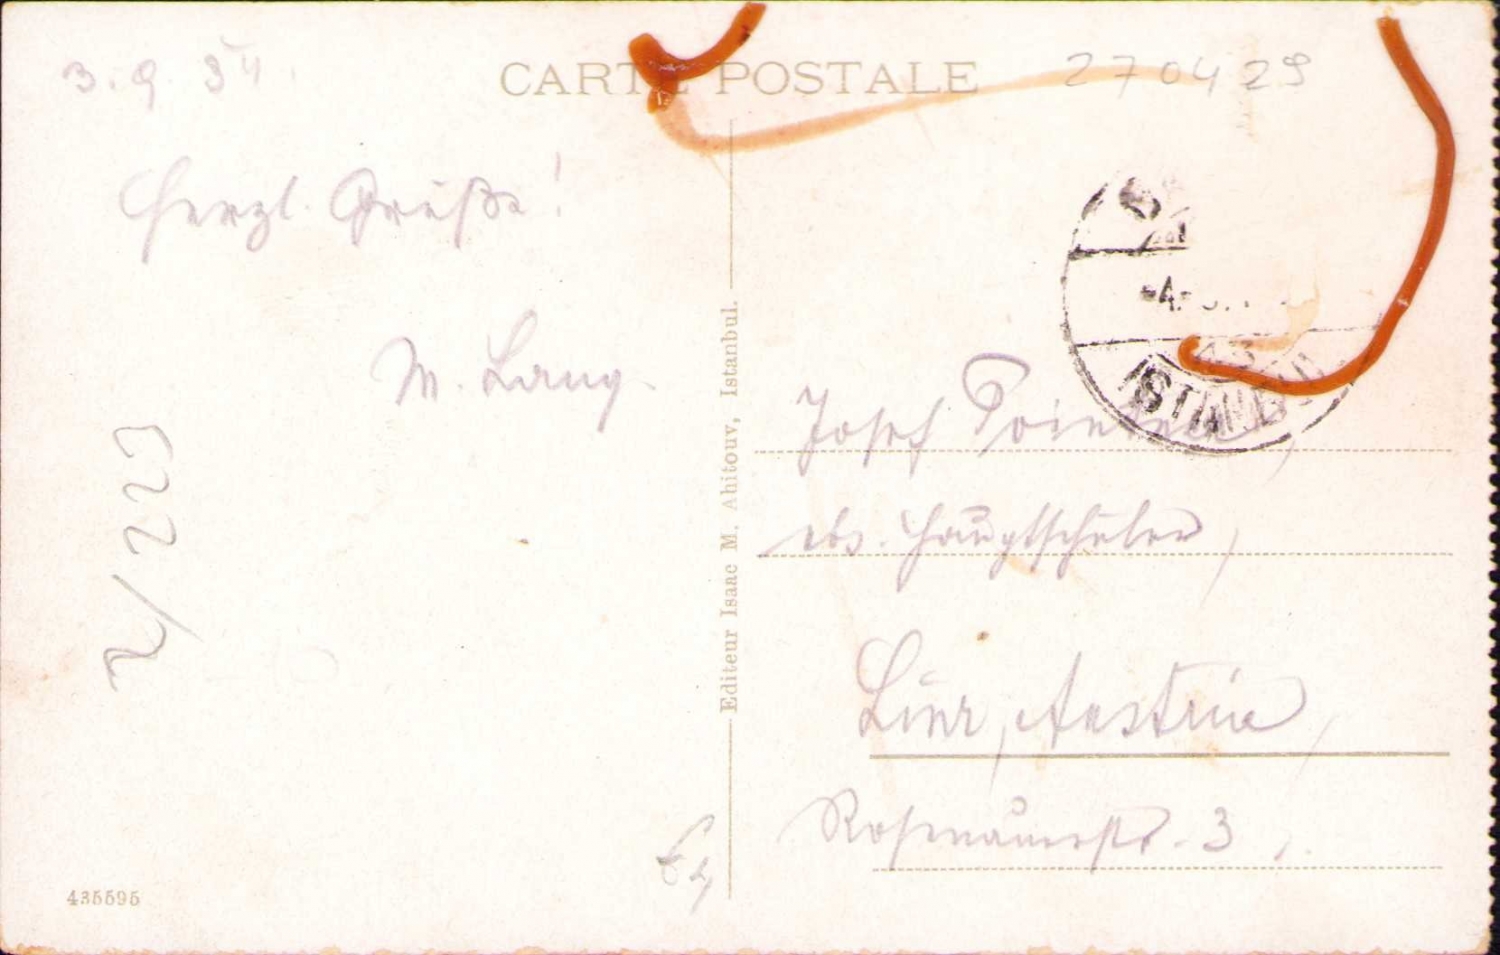 CARTE POSTALE
3. 9. 34.
270429
Herzl. Grüße!
M. Lang.
Editeur Isaac M. Ahitouv, Istanbul.
-4.
ISTANBUL
Josef
abs. Hauptschüler,
Linz, Austria,
Rosenauerstr. 3.
435595